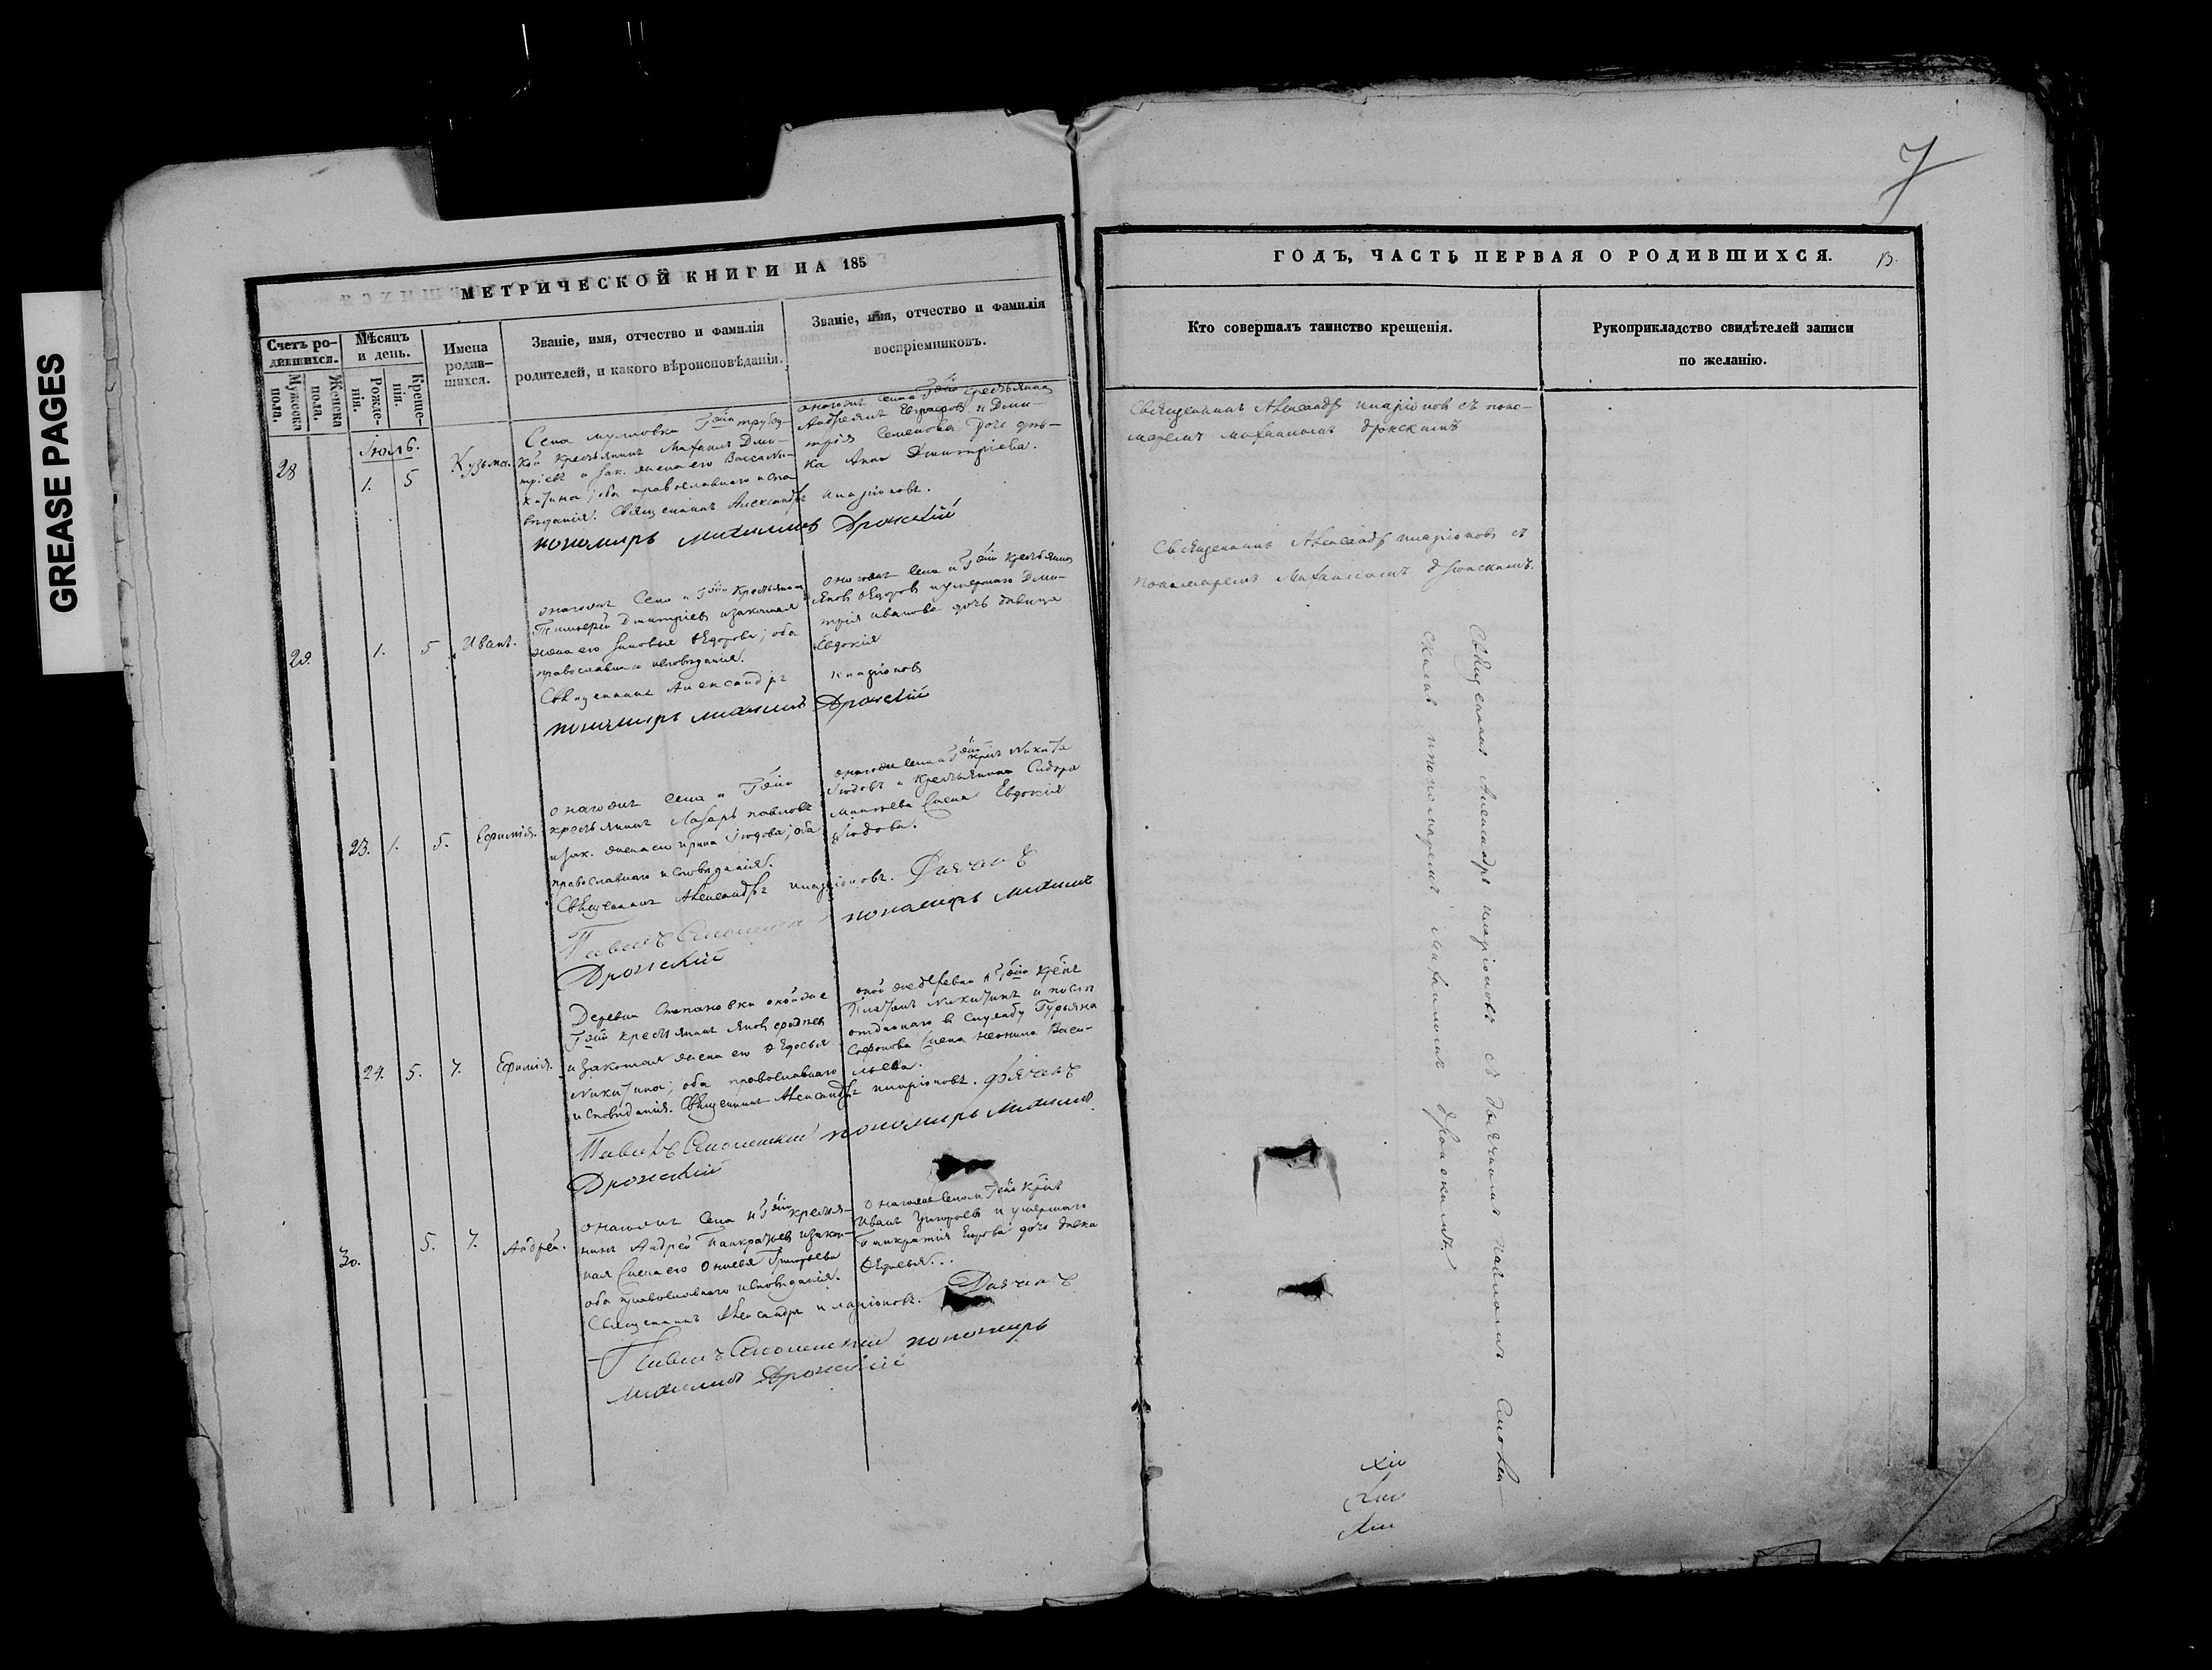 GREASE PAGES
7
МЕТРИЧЕСКОЙ КНИГИ НА 185
Счетъ ро-
дившихся.
Мужеска
пола.
Женска
пола.
Мѣсяцъ
и день.
Рожде-
нія.
Креще-
нія.
Имена
родив-
шихся.
Званіе, имя, отчество и фамилія
родителей, и какого вѣроисповѣданія.
Званіе, имя, отчество и фамилія
воспріемниковъ.
Іюль.
28
1. 5
Кузьма.
Села
кой крестьянинъ Михаилъ Дми-
тріевъ и зак. жена его Васса Ни-
китина; оба православнаго испо
вѣданія. Священникъ Александръ Иларіоновъ.
пономарь Михаилъ Дронскій
онагожъ села крестьянинъ
Андреянъ и Дми-
трія Семенова дочь дѣв-
ка Анна Дмитріева.
29.
1. 5
Иванъ.
онагожъ села и Гдіи крестьянинъ
Тимофей Дмитріевъ и законная
жена его Зиновья Ѳедорова; оба
православнаго исповѣданія.
Священникъ Александръ Иларіоновъ
пономарь Михаилъ Дронскій
онагожъ села и Гдіи крестьянинъ
Яковъ Ѳедоровъ и умершаго Дми-
трія Иванова дочь дѣвица
Евдокія
23. 1. 5.
Ефимія.
онагожъ села и Гдіи
крестьянинъ Лазарь Павловъ
и зак. жена его Ирина оба
православнаго исповѣданія.
Священникъ Александръ Иларіоновъ. Дьячекъ
Павелъ пономарь Михаилъ
Дронскій
онагожъ села и Гдіи Никита
и крестьянина Сидора
жена Евдокія
24. 5. 7.
Ефимія.
Деревни Степановки онойже
Гдіи крестьянинъ Яковъ
и законная жена его Ѳедосья
Никитина; оба православнаго
исповѣданія. Священникъ Александръ Иларіоновъ. Дьячекъ
Павелъ пономарь Михаилъ
Дронскій
оной же деревни и Гдіи
Никитинъ и
отданнаго в службу Гурьяна
Софонова жена Неонила Васи-
льева.
30.
5. 7.
Андрей.
онагожъ села и Гдіи крестья-
нинъ Андрей Панкратьевъ и закон-
ная жена его Григорьева
оба православнаго исповѣданія.
Священникъ Александръ Иларіоновъ. Дьячекъ
Павелъ пономарь
Михаилъ Дронскій
онагожъ села и Гдіи
Иванъ Григорьевъ и умершаго
Панкратія Егорова дочь дѣвка
ГОДЪ, ЧАСТЬ ПЕРВАЯ О РОДИВШИХСЯ.
Кто совершалъ таинство крещенія.
Рукоприкладство свидѣтелей записи
по желанію.
Священникъ Александръ Иларіоновъ съ поно-
маремъ Михаиломъ Дронскимъ
Священникъ Александръ Иларіоновъ съ
пономаремъ Михаиломъ Дронскимъ.
Священникъ Александръ Иларіоновъ съ дьячкомъ Павломъ
скимъ и пономаремъ Михаиломъ Дронскимъ.